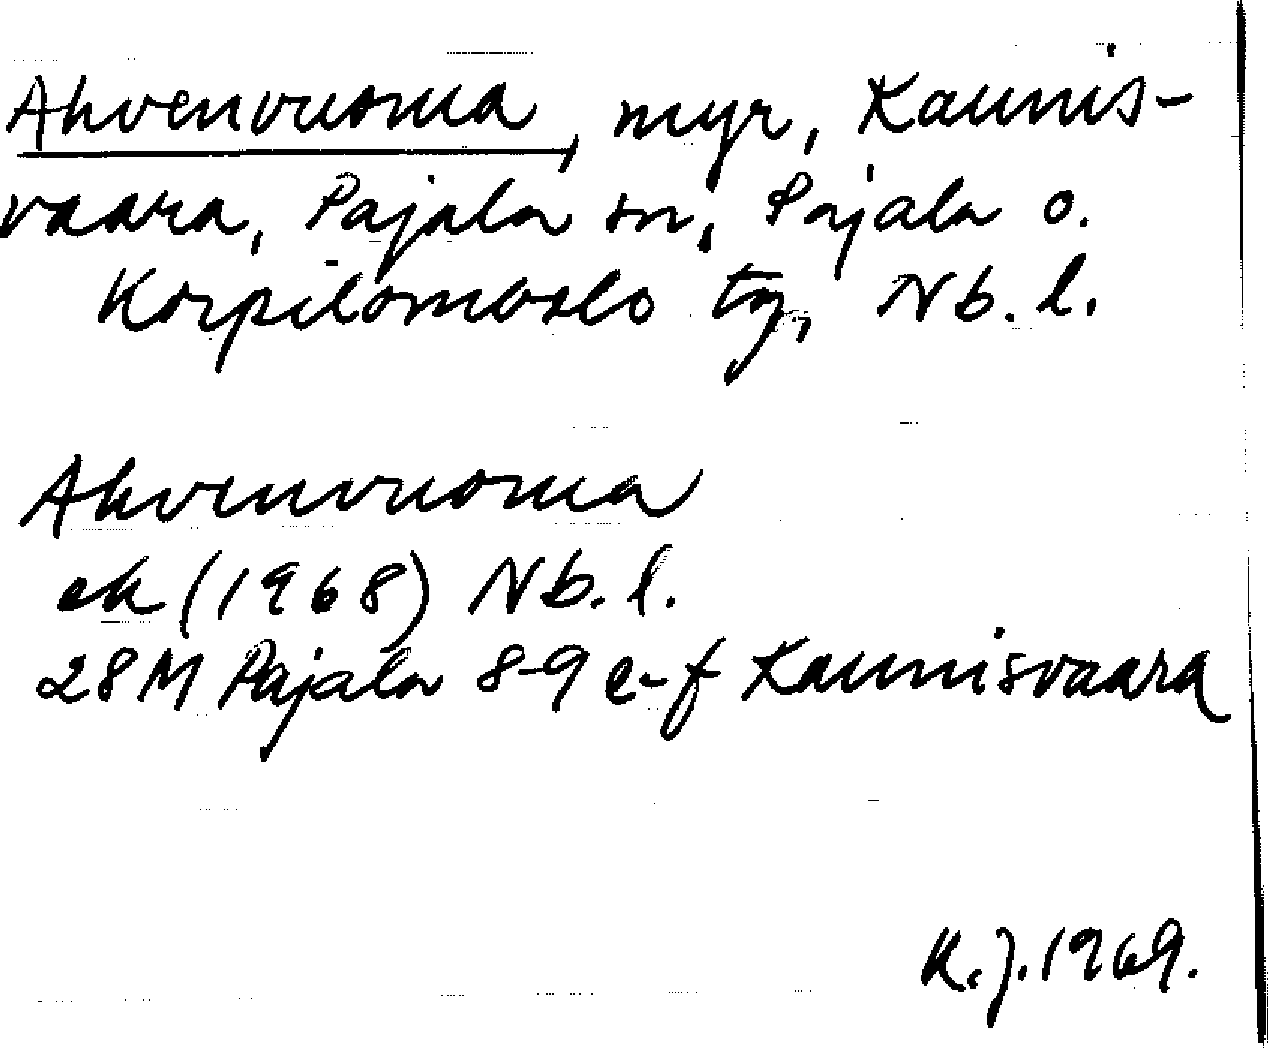 Ahvenvuoma, myr, Kaunis-
vaara, Pajala sn, Pajala o.
Korpilombolo tg, Nb. l.
Ahvenvuoma
ek (1968) Nb. l.
28M Pajala 8-9 e-f Kaunisvaara
K.J. 1969.